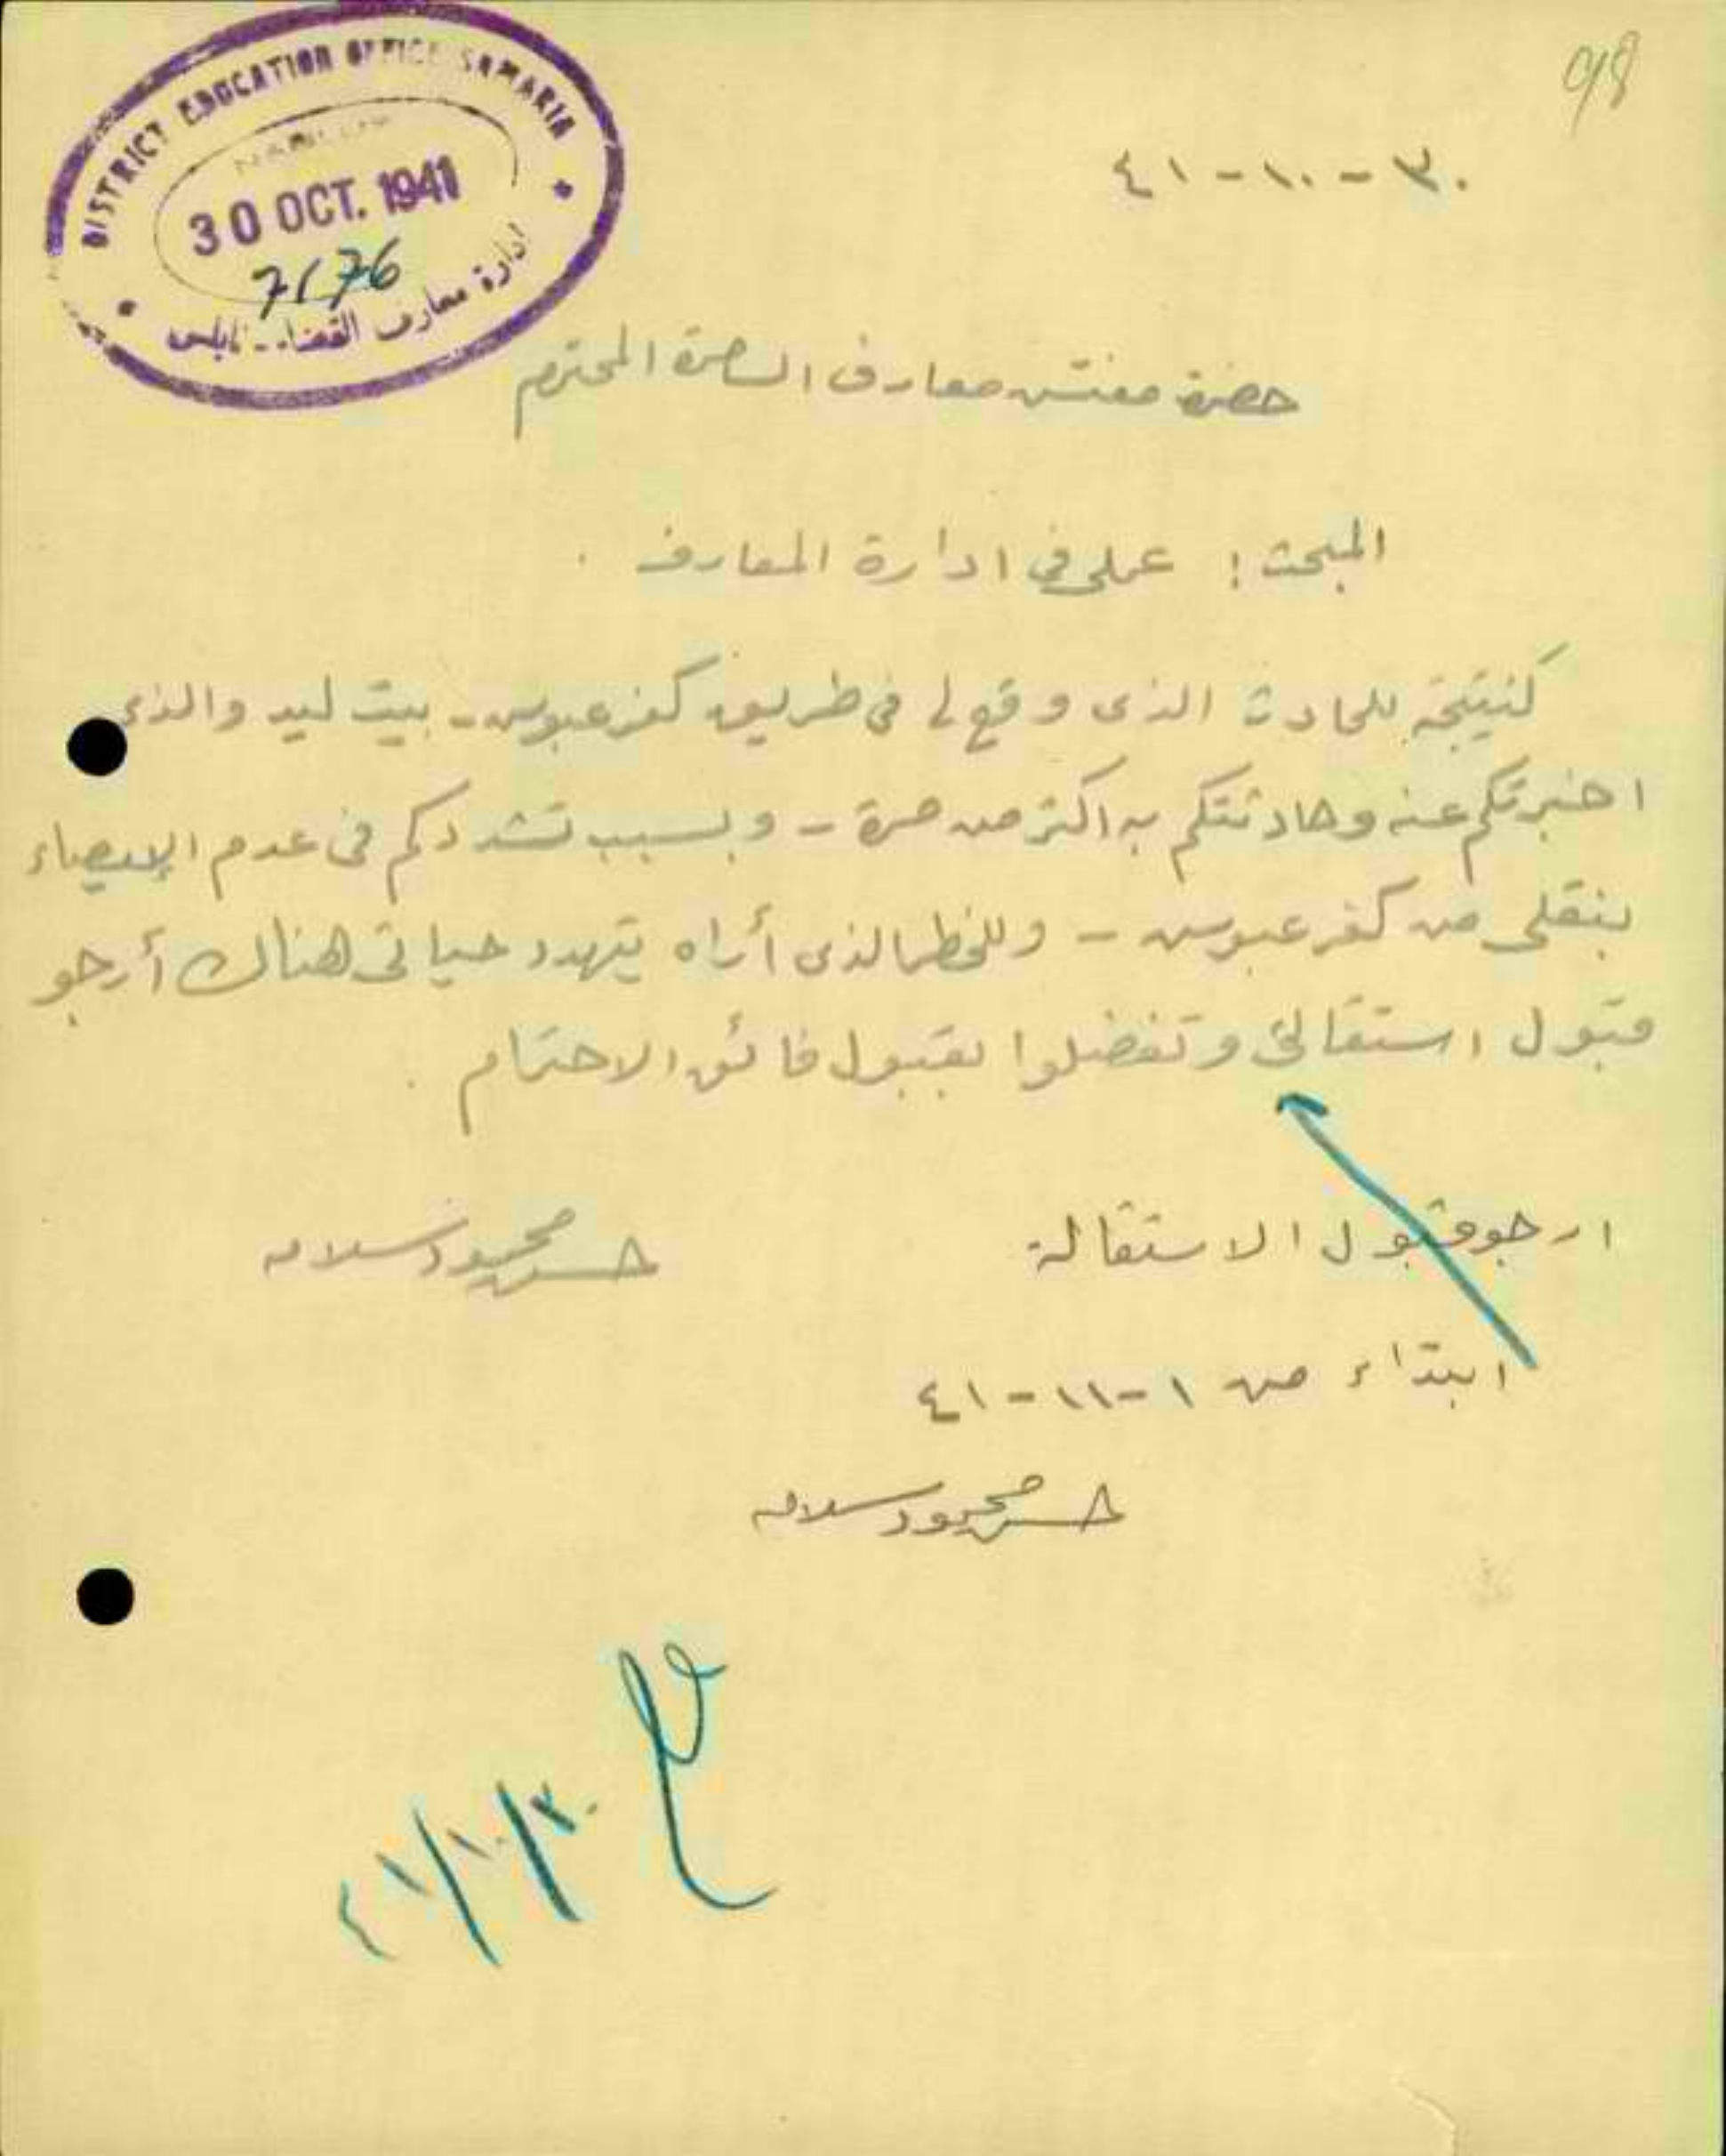 98
DISTRICT EDUCATION OFFICE SAMARIA
NABLUS
30 OCT. 1941
7176
ادارة معارف القضاء - نابلس
٣٠-١٠-٤١
حضرة مفتش معارف السامرة المحترم
المبحث : عملي في ادارة المعارف .
كنتيجة للحادث الذى وقع لي في طريق كفر عبوس - بيت ليد والذى
اخبرتكم عنه وحادثتكم به اكثر من مرة - وبسبب تشددكم في عدم الإيصاء
بنقلي من كفر عبوس - وللخطر الذى أراه يتهدد حياتي هناك أرجو
قبول استقالتي وتفضلوا بقبول فائق الاحترام .
حسن محمود سلامه
ارجو قبول الاستقالة
ابتداء من ١-١١-٤١
حسن محمود سلامه
٣٠/١٠/٤١